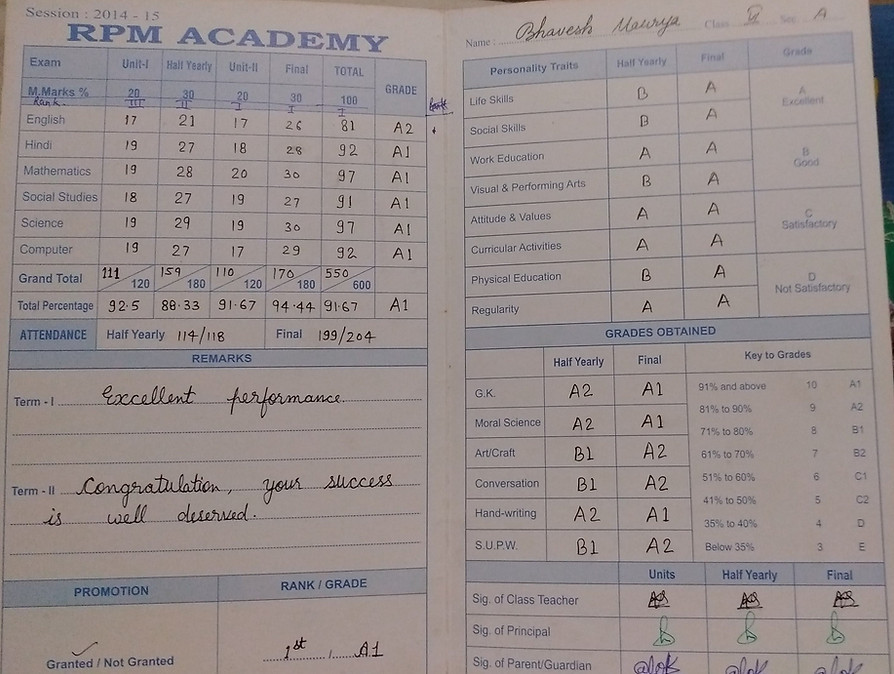 Session : 2014 - 15
RPM ACADEMY
Exam Unit-I Half Yearly Unit-II Final TOTAL GRADE
M.Marks % 20 30 20 30 100
Rank. III II I I I Rank
English 17 21 17 26 81 A2
Hindi 19 27 18 28 92 A1
Mathematics 19 28 20 30 97 A1
Social Studies 18 27 19 27 91 A1
Science 19 29 19 30 97 A1
Computer 19 27 17 29 92 A1
Grand Total 111/120 159/180 110/120 170/180 550/600
Total Percentage 92.5 88.33 91.67 94.44 91.67 A1
ATTENDANCE Half Yearly 114/118 Final 199/204
REMARKS
Term - I Excellent performance.
Term - II Congratulation, your success
is well deserved.
PROMOTION RANK / GRADE
Granted / Not Granted 1st / A1
Name : Bhavesh Maurya Class II Sec A
Personality Traits Half Yearly Final Grade
Life Skills B A
A
Excellent
Social Skills B A
Work Education A A
B
Good
Visual & Performing Arts B A
Attitude & Values A A
C
Satisfactory
Curricular Activities A A
Physical Education B A
D
Not Satisfactory
Regularity A A
GRADES OBTAINED
Half Yearly Final Key to Grades
G.K. A2 A1 91% and above 10 A1
81% to 90% 9 A2
Moral Science A2 A1 71% to 80% 8 B1
Art/Craft B1 A2 61% to 70% 7 B2
Conversation B1 A2 51% to 60% 6 C1
41% to 50% 5 C2
Hand-writing A2 A1 35% to 40% 4 D
S.U.P.W. B1 A2 Below 35% 3 E
Units Half Yearly Final
Sig. of Class Teacher
Sig. of Principal
Sig. of Parent/Guardian